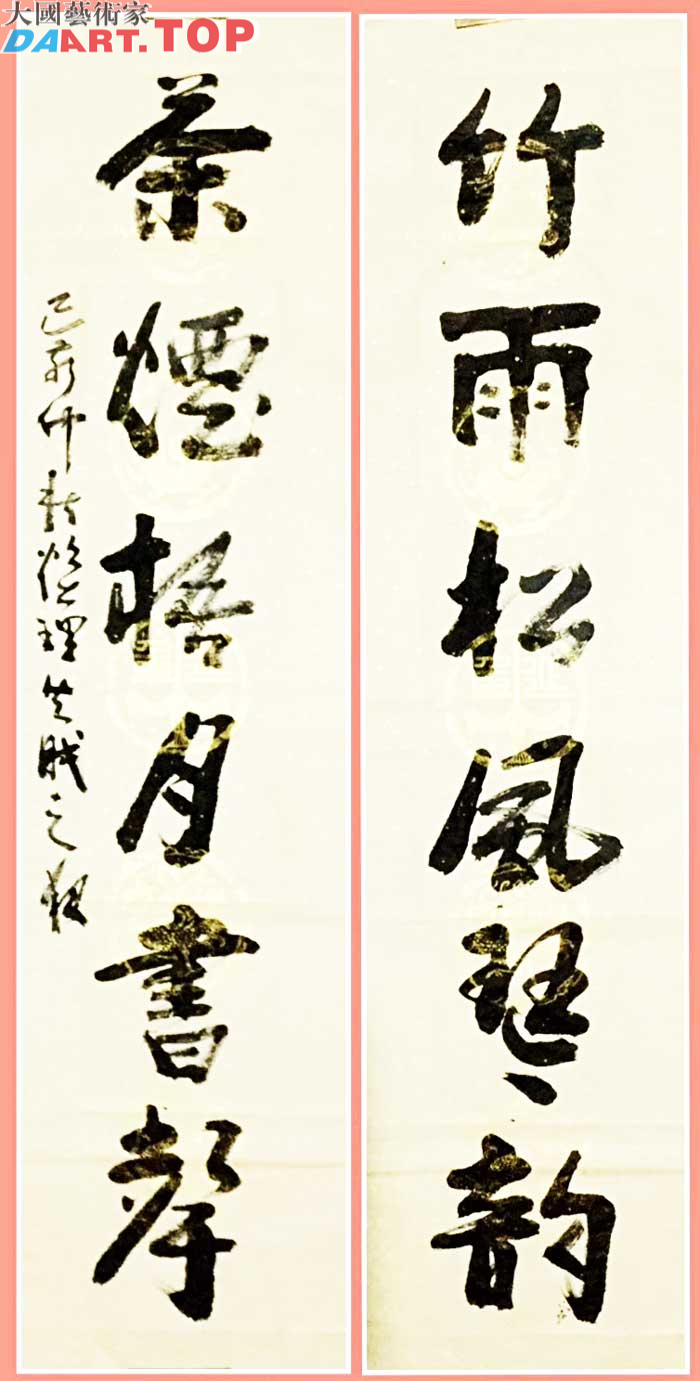 大國藝術家
DAART.TOP
竹雨松風琴韵
茶煙梧月書聲
己亥仲秋
之靱